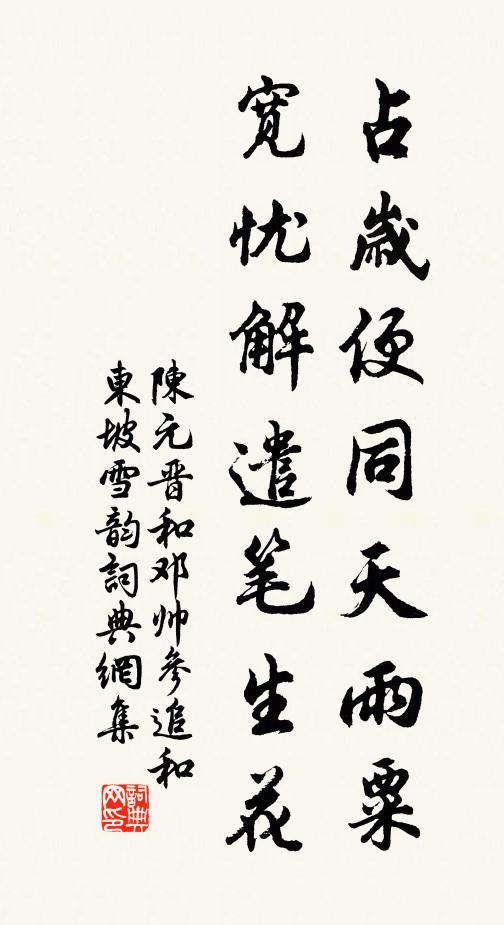 占歲便同天雨粟
宽忧解遣笔生花
陳元晋和邓帅參追和
東坡雪韵詞典網集
詞典
网印